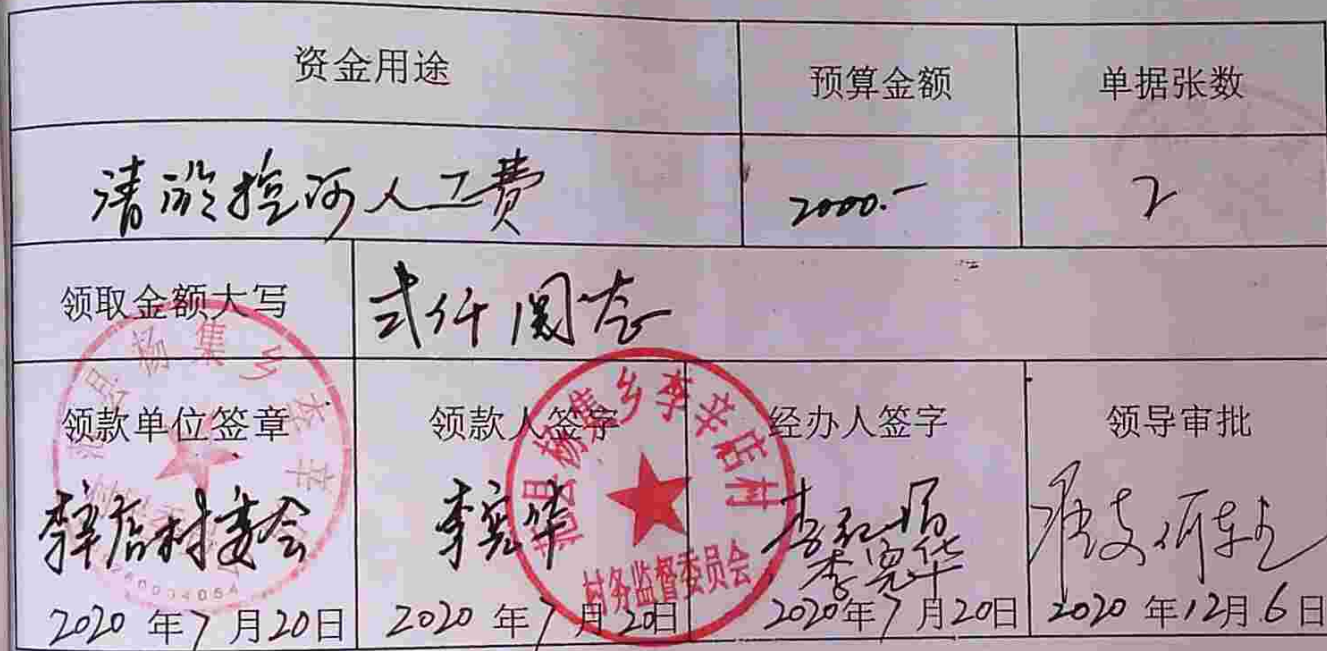 资金用途 预算金额 单据张数
清淤挖河人工费 2000.- 2
领取金额大写 弍仟圆态
领款单位签章 领款人签字 经办人签字 领导审批
李辛店村委会 李宪华 李宪华
2020年7月20日 2020年7月20日 2020年7月20日 2020年12月6日
县杨集乡李辛店村
村务监督委员会
县杨集乡李辛